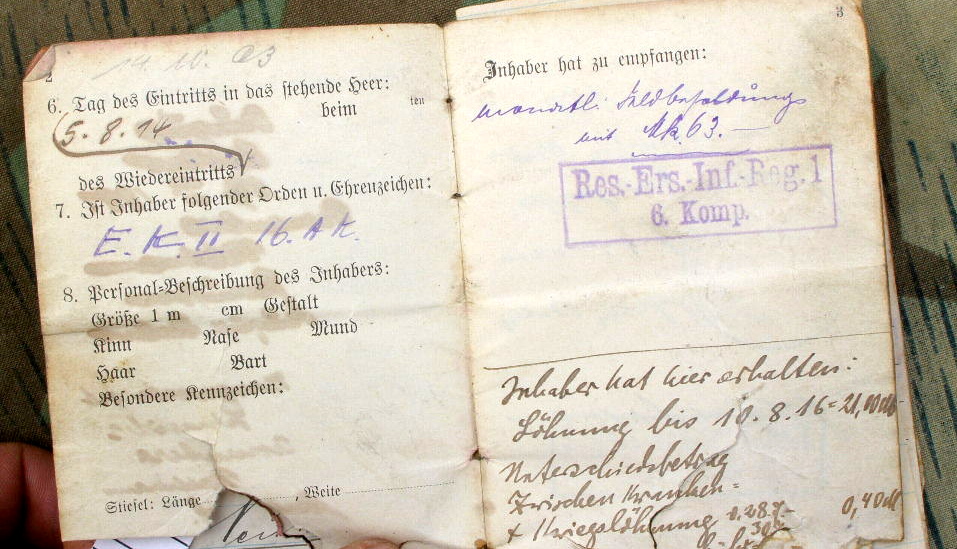 2
14. 10. 03
6. Tag des Eintritts in das stehende Heer:
beim ten
5. 8. 14
des Wiedereintritts
7. Ist Inhaber folgender Orden u. Ehrenzeichen:
E. K. II 16. A K.
8. Personal-Beschreibung des Inhabers:
Größe 1 m cm Gestalt
Kinn Nase Mund
Haar Bart
Besondere Kennzeichen:
Stiefel: Länge , Weite
3
Inhaber hat zu empfangen:
monatl. Feldbesoldung
mit Mk. 63.—
Res.-Ers.-Inf.-Reg. 1
6. Komp.
Inhaber hat hier erhalten:
Löhnung bis 10. 8. 16 =
Unterschiedsbetrag
Zwischen Kranken-
+ Kriegslöhnung